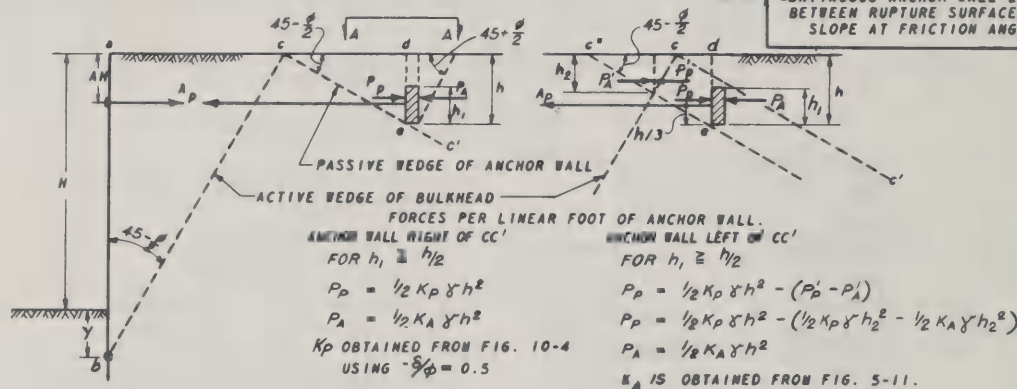 CONTINUOUS ANCHOR WALL
BETWEEN RUPTURE SURFACE
SLOPE AT FRICTION
45-φ/2
A A
45+φ/2
45-φ/2
a
c
d
c"
c
d
h2
P'A
P'P
AH
AP
PP
PA
h1
h
AP
PP
PA
h1
h
e
c'
e
h/3
c'
H
PASSIVE WEDGE OF ANCHOR WALL
ACTIVE WEDGE OF BULKHEAD
45-φ/2
FORCES PER LINEAR FOOT OF ANCHOR WALL.
ANCHOR WALL RIGHT OF CC'
FOR h1 ≧ h/2
PP = 1/2 KP γh²
PA = 1/2 KA γh²
KP OBTAINED FROM FIG. 10-4
USING -δ/φ = 0.5
ANCHOR WALL LEFT OF CC'
FOR h1 ≧ h/2
PP = 1/2 KP γh² - (P'P - P'A)
PP = 1/2 KP γh² - (1/2 KP γh2² - 1/2 KA γh2²)
PA = 1/2 KA γh²
KA IS OBTAINED FROM FIG. 5-11.
y
b